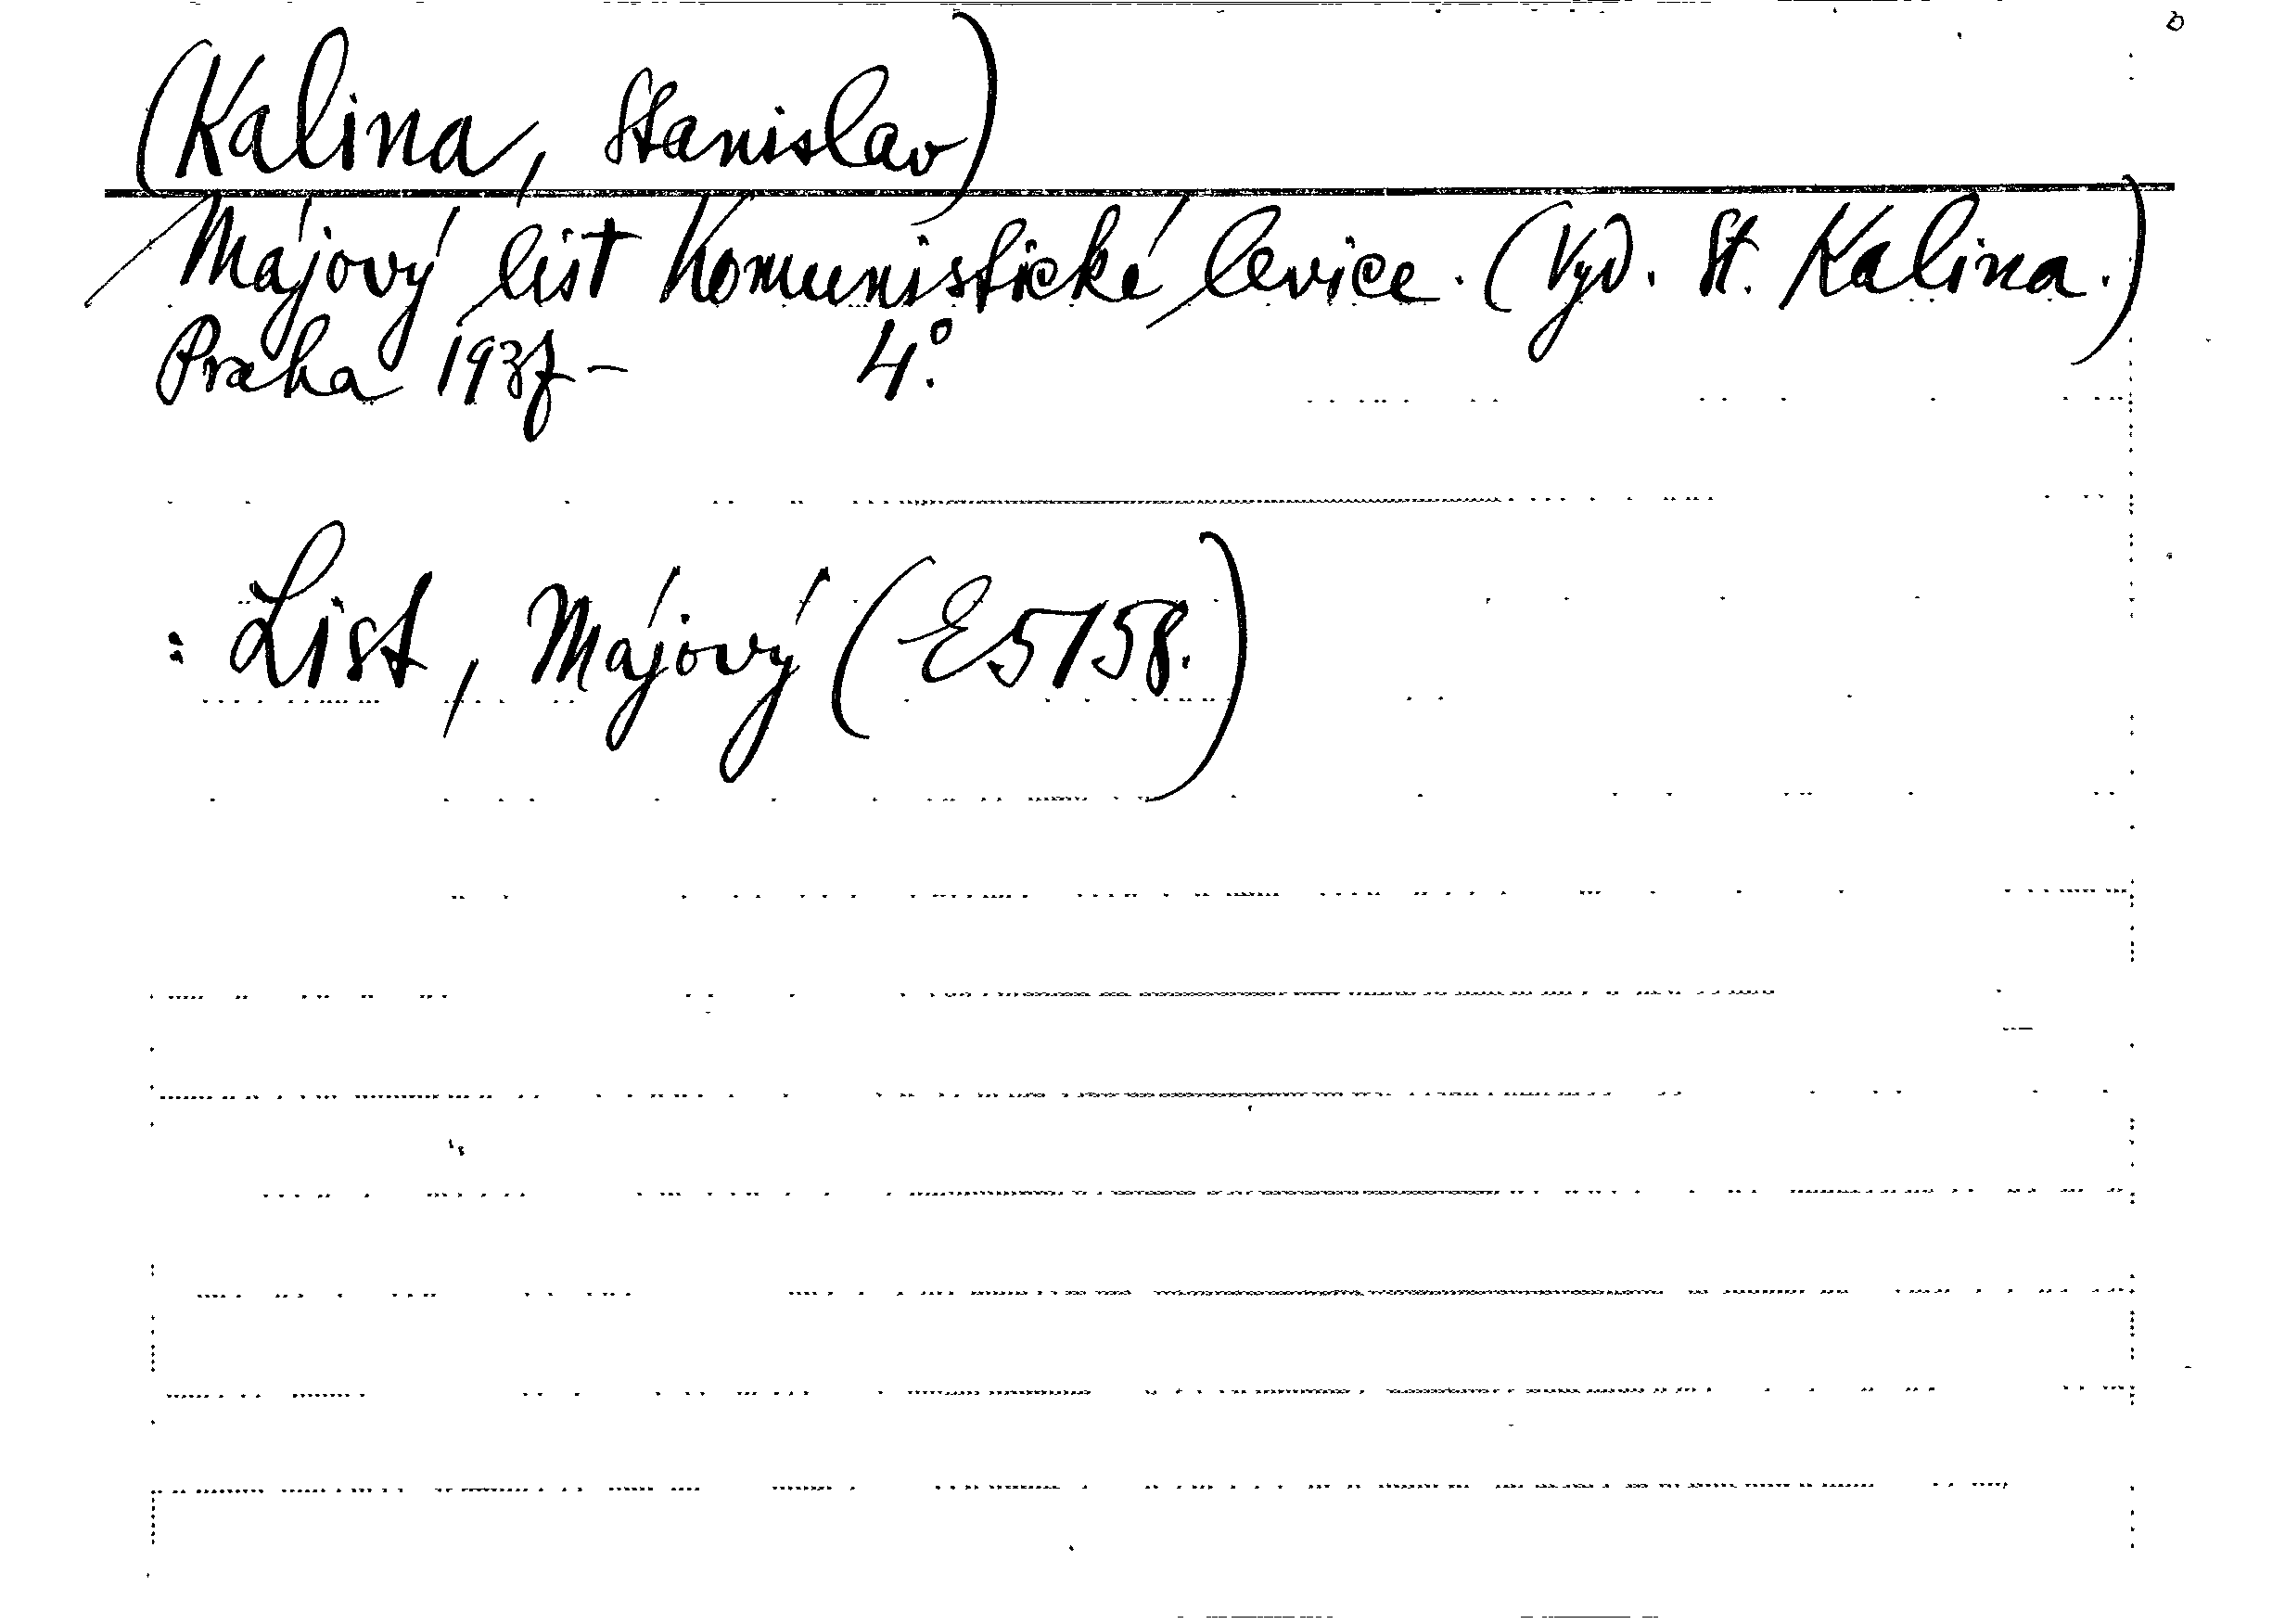 (Kalina, Stanislav)
Májový list Komunistické levice. (Vyd. St. Kalina.)
Praha 1937- 4°.
: List, Májový (E5158.)